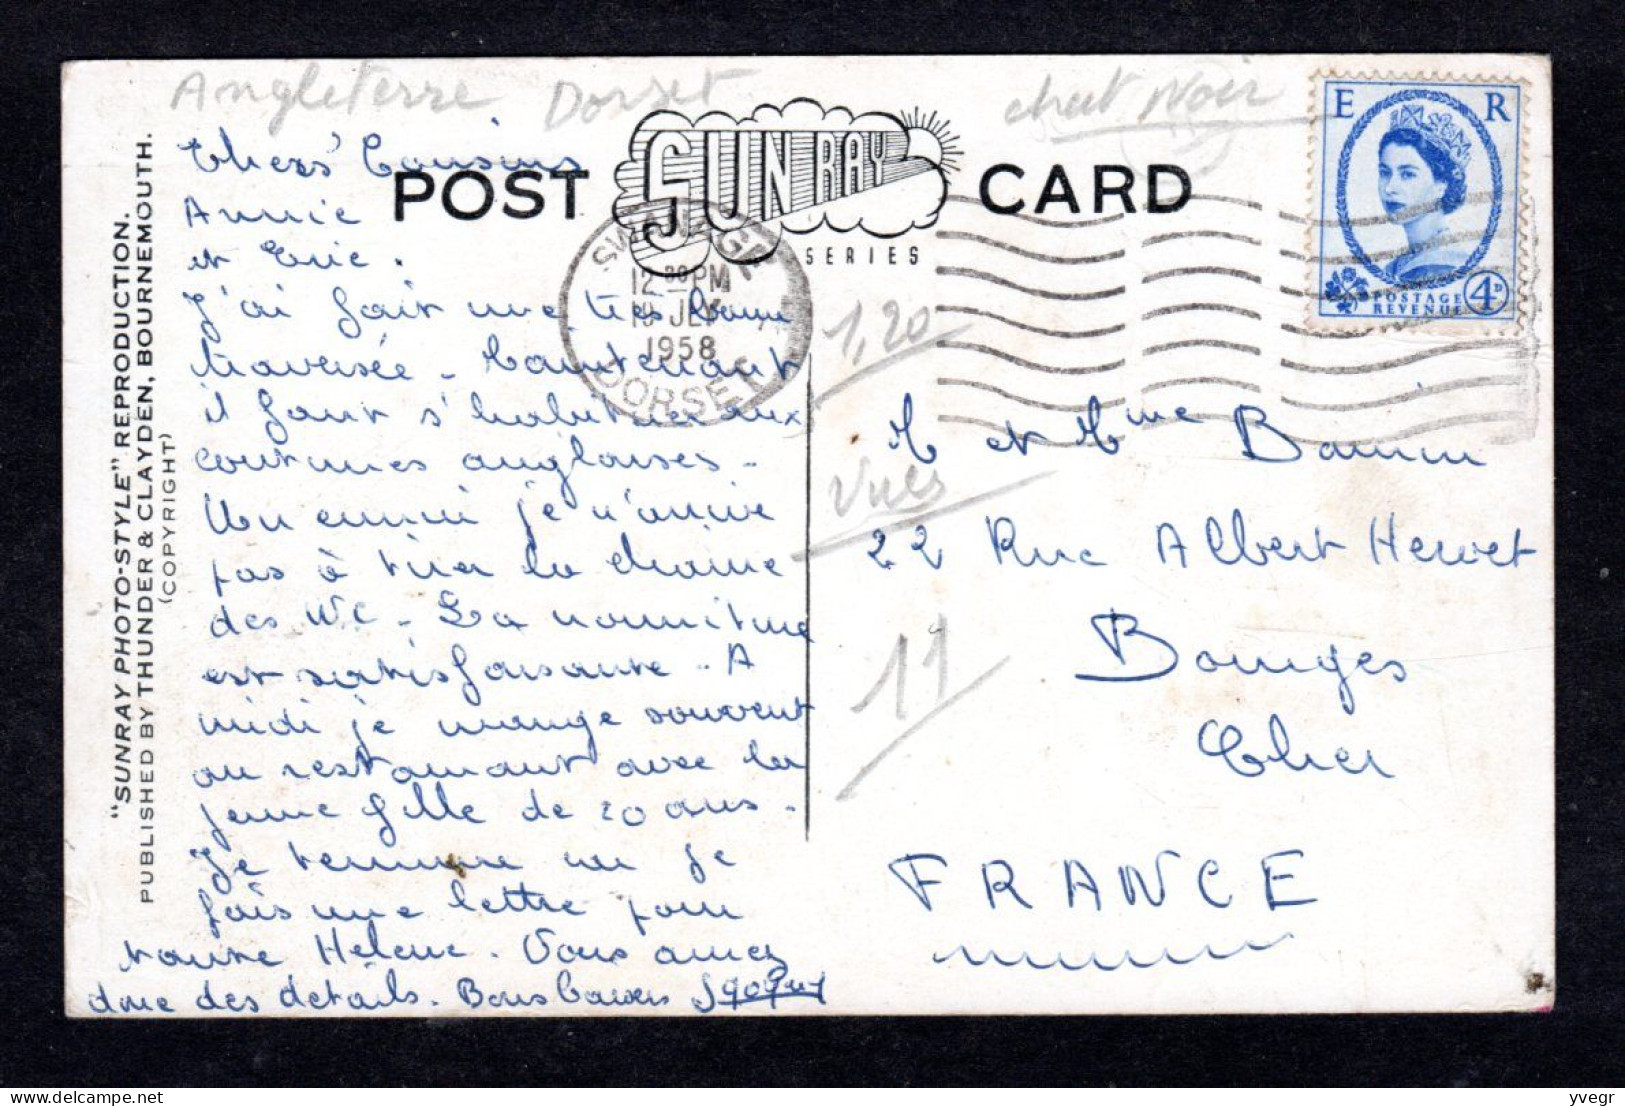 Angleterre Dorset
chat Noir
"SUNRAY PHOTO-STYLE" REPRODUCTION.
PUBLISHED BY THUNDER & CLAYDEN, BOURNEMOUTH.
(COPYRIGHT)
POST SUN RAY CARD
SERIES
E R
POSTAGE
REVENUE
4D
SWANAGE
12 30 PM
JLY
1958
DORSET
Chers Cousins
Annie
et Eric.
J'ai fait une très bonne
traversée. Maintenant
il faut s'habituer aux
coutumes anglaises.
Un ennui je n'arrive
pas à tirer la chaine
des WC. La nourriture
est satisfaisante. A
midi je mange souvent
au restaurant avec la
jeune fille de 20 ans.
Je termine car je
fais une lettre pour
tante Helene. Vous aurez
donc des détails. Bons baisers
1,20
Vues
11
M et Mme
22 Rue Albert Hervet
Bourges
Cher
FRANCE
yvegr